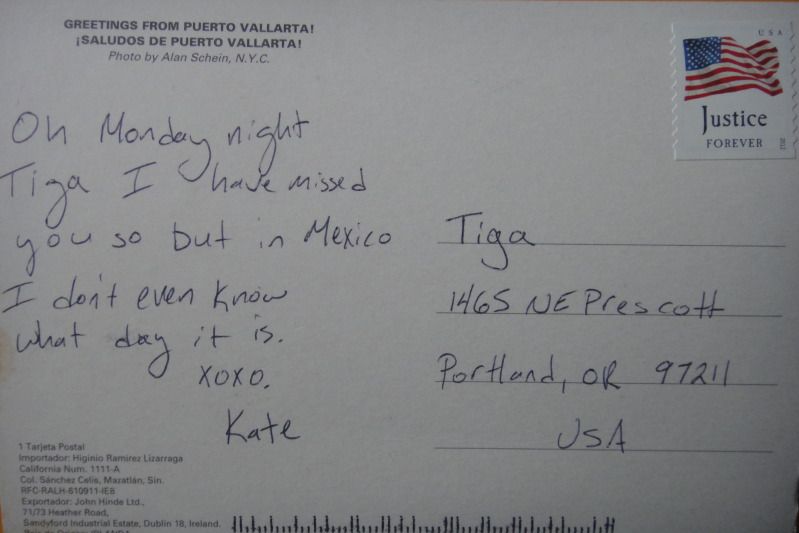 GREETINGS FROM PUERTO VALLARTA!
¡SALUDOS DE PUERTO VALLARTA!
Photo by Alan Schein, N.Y.C.
USA
Justice
FOREVER
2012
Oh Monday night
Tiga I have missed
you so but in Mexico
I don't even know
what day it is.
XOXO.
Kate
Tiga
1465 NE Prescott
Portland, OR 97211
USA
1 Tarjeta Postal
Importador: Higinio Ramirez Lizarraga
California Num. 1111-A
Col. Sánchez Celis, Mazatlán, Sin.
RFC-RALH-610911-IE8
Exportador: John Hinde Ltd.,
71/73 Heather Road,
Sandyford Industrial Estate, Dublin 18, Ireland.